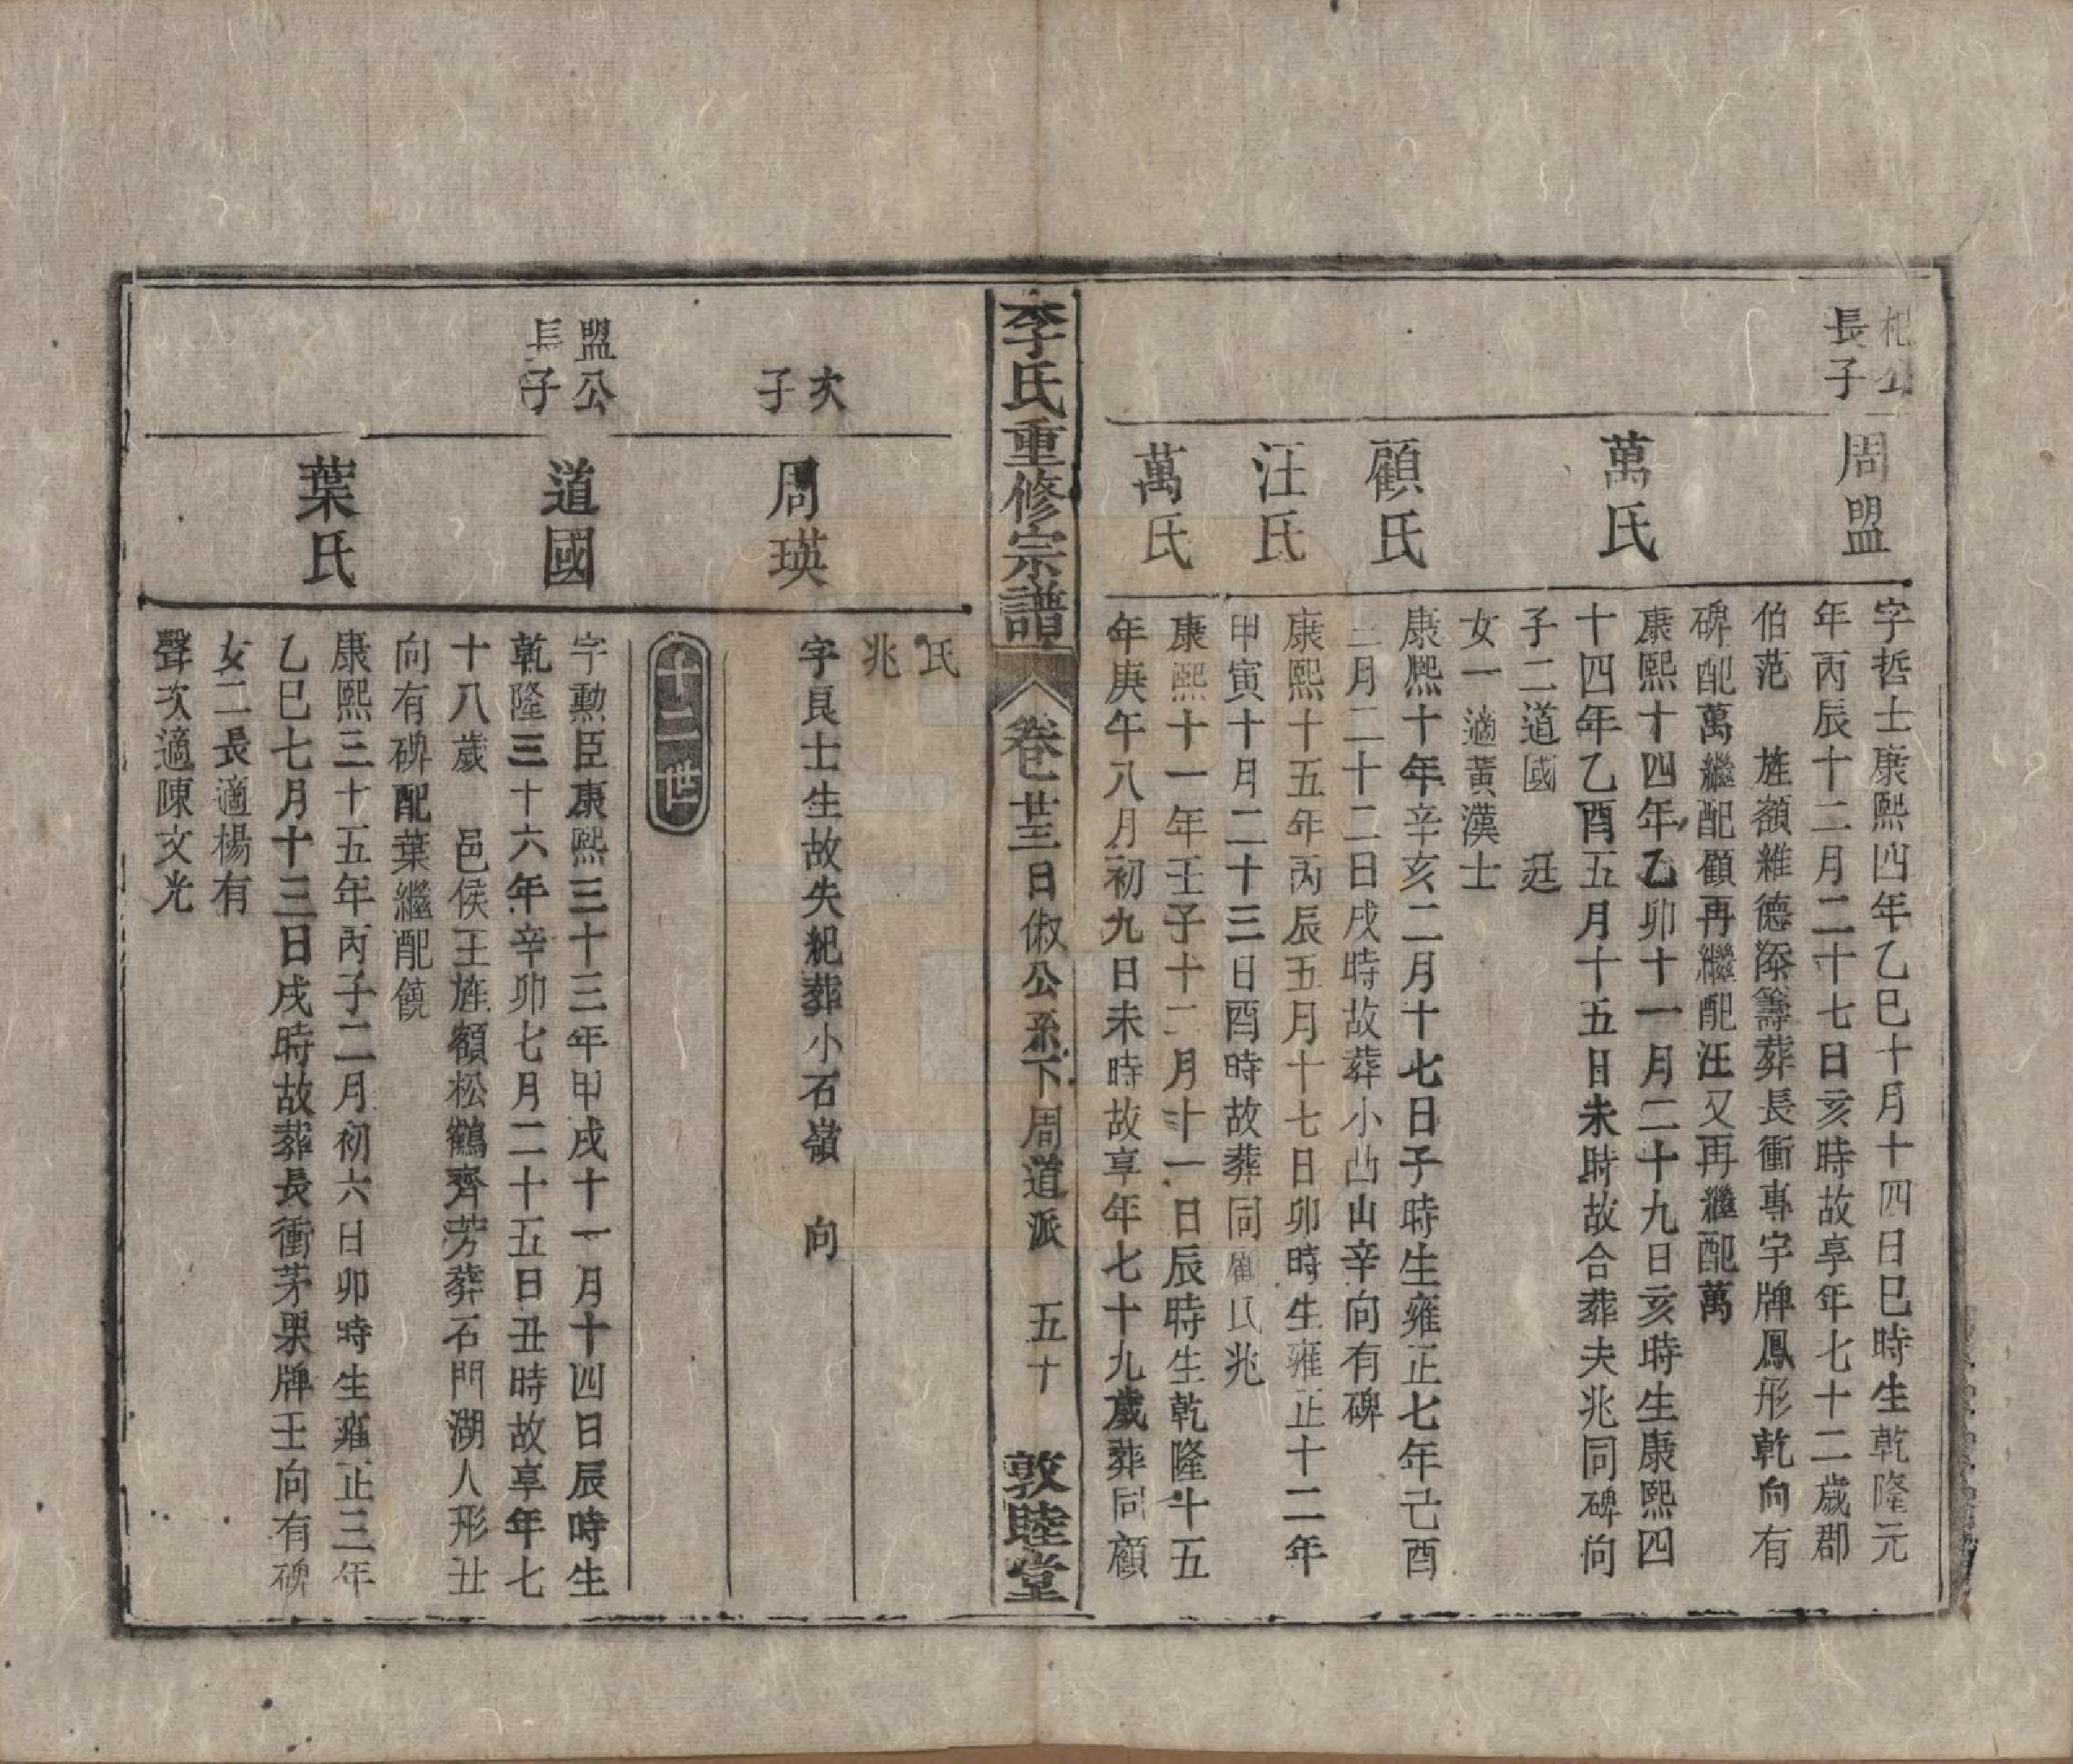 杞公
長子
周盟
字哲士康熙四年乙巳十月十四日巳時生乾隆元
年丙辰十二月二十七日亥時故享年七十二歲郡
伯范　旌額雅德添籌葬長衝專字牌鳳形乾向有
碑配萬繼配顧再繼配汪又再繼配萬
萬氏
康熙十四年乙卯十一月二十九日亥時生康熙四
十四年乙酉五月十五日未時故合葬夫兆同碑向
子二道國　廷
女一適黃漢士
顧氏
康熙十年辛亥二月十七日子時生雍正七年己酉
二月二十二日戌時故葬小凸山辛向有碑
汪氏
康熙十五年丙辰五月十七日卯時生雍正十二年
甲寅十月二十三日酉時故葬同顧氏兆
萬氏
康熙十一年壬子十二月十一日辰時生乾隆十五
年庚午八月初九日未時故享年七十九歲葬同顧
李氏重修宗譜
卷廿三日俶公系下周道派　五十
敦睦堂
氏
兆
次
子
周瑛
字良士生故失紀葬小石嶺　向
十二世
盟公
長子
道國
字勳臣康熙三十三年甲戌十一月十四日辰時生
乾隆三十六年辛卯七月二十五日丑時故享年七
十八歲　邑侯王旌額松鶴齊芳葬石門湖人形丑
向有碑配葉繼配饒
葉氏
康熙三十五年丙子二月初六日卯時生雍正三年
乙巳七月十三日戌時故葬長衝茅栗牌壬向有碑
女二長適楊有
聲次適陳文光